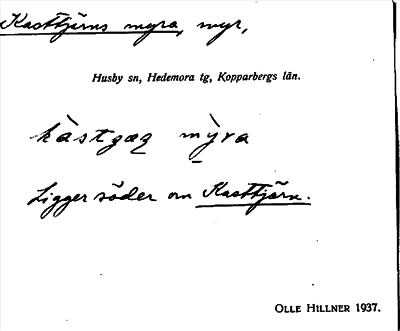 Kasttjärns myra, myr,
Husby sn, Hedemora tg, Kopparbergs län.
kàstgæṇ myra
Ligger söder om Kasttjärn.
OLLE HILLNER 1937.